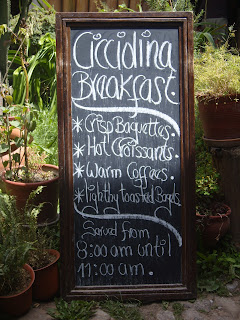 Ciccidina
Breakfast.
* Crisp Baguettes.
* Hot Croissants.
* Warm Coffees.
* lightly toasted Bagels.
Served from
8:00 am until
11:00 am.